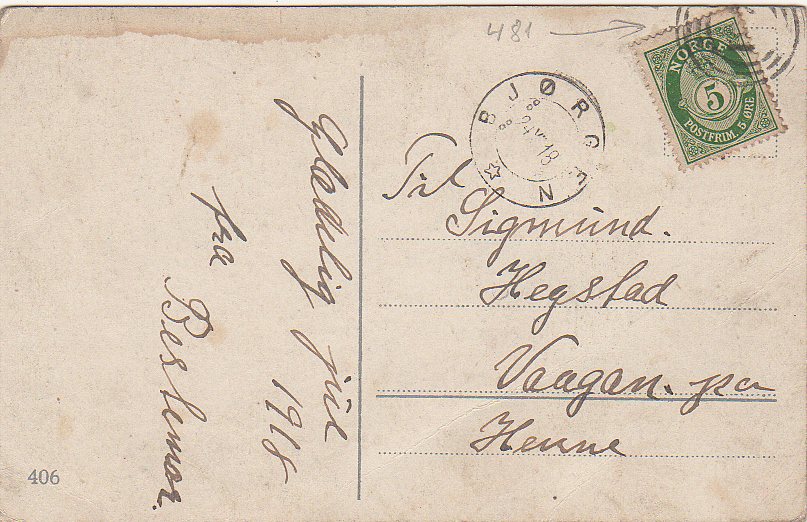 481
NORGE
5
POSTFRIM. 5 ØRE
BJØRGEN
24 XII 18
8 8
Til
Sigmund.
Hegstad
Vaagan. pa
Henne
Glædelig jul
1918
fra
Bestemor.
406